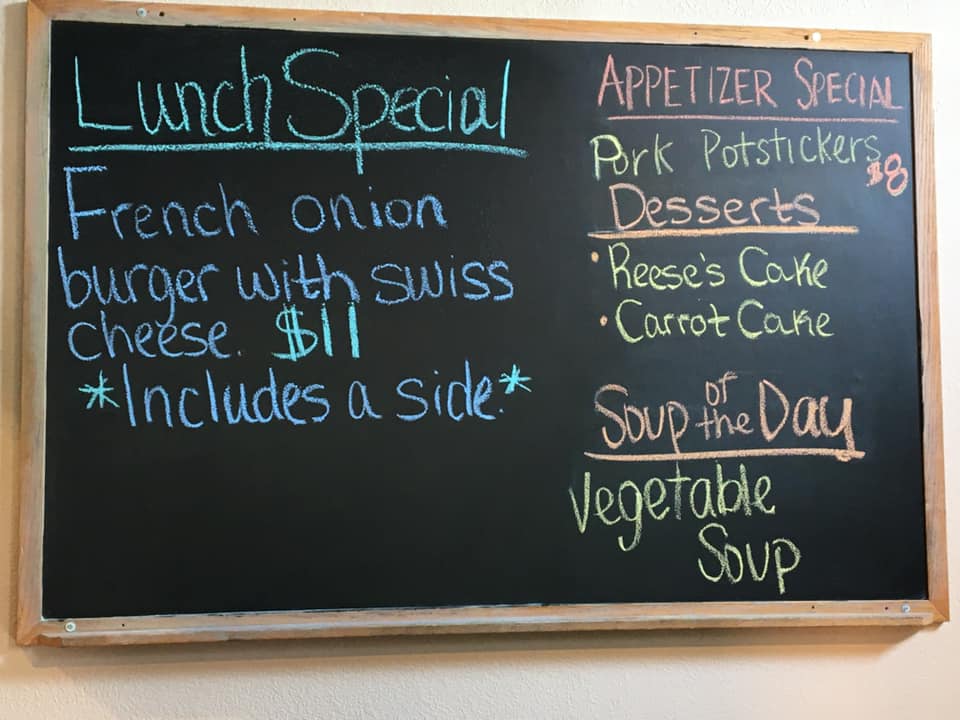 Lunch Special
French onion
burger with swiss
cheese. $11
*Includes a side.*
APPETIZER SPECIAL
Pork Potstickers
$8
Desserts
• Reese's Cake
• Carrot Cake
Soup of the Day
Vegetable
Soup